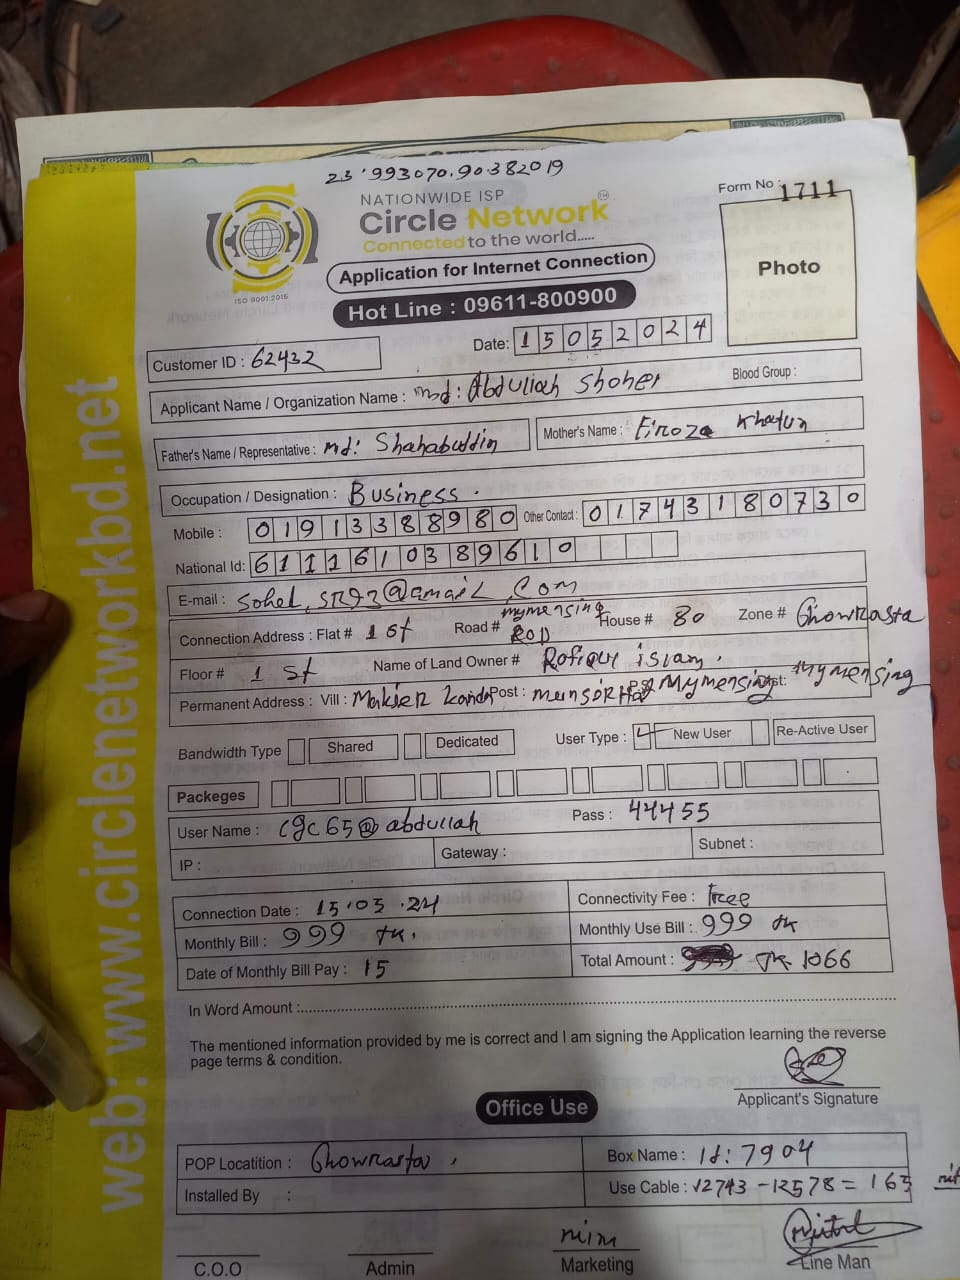 23.993070.90.382019
NATIONWIDE ISP
Circle Network TM
Connected to the world.....
ISO 9001:2015
Application for Internet Connection
Hot Line : 09611-800900
Form No : 1711
Photo
Date: 15052024
Customer ID : 62432
Applicant Name / Organization Name : md: Abdullah Shohel
Blood Group :
Father's Name / Representative : md: Shahabuddin
Mother's Name : Firoza Khatun
Occupation / Designation : Business.
Mobile : 01913388980 Other Contact : 01743180730
National Id: 6111610389610
E-mail : Sohel.SR93@gmail.com
Connection Address : Flat # 1st Road # mymensing Rod House # 80 Zone # Chowrasta
Floor # 1st Name of Land Owner # Rofiqur islam.
Permanent Address : Vill : Post : PS: Mymensing Dist: Mymensing
Bandwidth Type Shared Dedicated User Type : New User Re-Active User
Packeges
User Name : cgc65@abdullah Pass : 44455
IP : Gateway : Subnet :
Connection Date : 15.05.24 Connectivity Fee : Free
Monthly Bill : 999 tk. Monthly Use Bill : 999 tk
Date of Monthly Bill Pay : 15 Total Amount : TK 1066
In Word Amount :
The mentioned information provided by me is correct and I am signing the Application learning the reverse
page terms & condition.
Applicant's Signature
Office Use
POP Locatition : Chowrasta, Box Name : Id: 7904
Installed By : Use Cable : 12743 - 12578 = 165
C.O.O Admin mim Marketing Line Man
web: www.circlenetworkbd.net